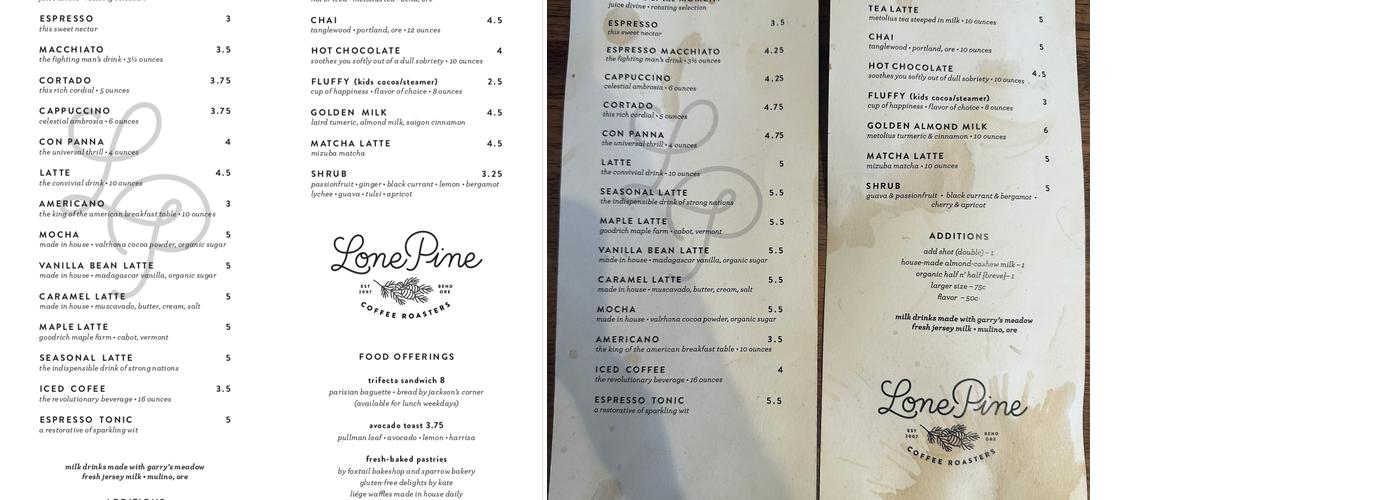 ESPRESSO 3
this sweet nectar
MACCHIATO 3.5
the fighting man's drink • 3½ ounces
CORTADO 3.75
this rich cordial • 5 ounces
CAPPUCCINO 3.75
celestial ambrosia • 6 ounces
CON PANNA 4
the universal thrill • 4 ounces
LATTE 4.5
the convivial drink • 10 ounces
AMERICANO 3
the king of the american breakfast table • 10 ounces
MOCHA 5
made in house • valrhona cocoa powder, organic sugar
VANILLA BEAN LATTE 5
made in house • madagascar vanilla, organic sugar
CARAMEL LATTE 5
made in house • muscavado, butter, cream, salt
MAPLE LATTE 5
goodrich maple farm • cabot, vermont
SEASONAL LATTE 5
the indispensible drink of strong nations
ICED COFEE 3.5
the revolutionary beverage • 16 ounces
ESPRESSO TONIC 5
a restorative of sparkling wit
milk drinks made with garry's meadow
fresh jersey milk • mulino, ore
CHAI 4.5
tanglewood • portland, ore • 12 ounces
HOT CHOCOLATE 4
soothes you softly out of a dull sobriety • 10 ounces
FLUFFY (kids cocoa/steamer) 2.5
cup of happiness • flavor of choice • 8 ounces
GOLDEN MILK 4.5
laird tumeric, almond milk, saigon cinnamon
MATCHA LATTE 4.5
mizuba matcha
SHRUB 3.25
passionfruit • ginger • black currant • lemon • bergamot
lychee • guava • tulsi • apricot
Lone Pine
EST 2007 BEND ORE
COFFEE ROASTERS
FOOD OFFERINGS
trifecta sandwich 8
parisian baguette • bread by jackson's corner
(available for lunch weekdays)
avocado toast 3.75
pullman loaf • avocado • lemon • harrisa
fresh-baked pastries
by foxtail bakeshop and sparrow bakery
gluten-free delights by kate
liége waffles made in house daily
juice divine • rotating selection
ESPRESSO 3.5
this sweet nectar
ESPRESSO MACCHIATO 4.25
the fighting man's drink • 3½ ounces
CAPPUCCINO 4.25
celestial ambrosia • 6 ounces
CORTADO 4.75
this rich cordial • 5 ounces
CON PANNA 4.75
the universal thrill • 4 ounces
LATTE 5
the convivial drink • 10 ounces
SEASONAL LATTE 5.5
the indispensible drink of strong nations
MAPLE LATTE 5.5
goodrich maple farm • cabot, vermont
VANILLA BEAN LATTE 5.5
made in house • madagascar vanilla, organic sugar
CARAMEL LATTE 5.5
made in house • muscavado, butter, cream, salt
MOCHA 5.5
made in house • valrhona cocoa powder, organic sugar
AMERICANO 3.5
the king of the american breakfast table • 10 ounces
ICED COFFEE 4
the revolutionary beverage • 16 ounces
ESPRESSO TONIC 5.5
a restorative of sparkling wit
TEA LATTE 5
metolius tea steeped in milk • 10 ounces
CHAI 5
tanglewood • portland, ore • 10 ounces
HOT CHOCOLATE 4.5
soothes you softly out of dull sobriety • 10 ounces
FLUFFY (kids cocoa/steamer) 3
cup of happiness • flavor of choice • 8 ounces
GOLDEN ALMOND MILK 6
metolius turmeric & cinnamon • 10 ounces
MATCHA LATTE 5
mizuba matcha • 10 ounces
SHRUB 5
guava & passionfruit • black currant & bergamot •
cherry & apricot
ADDITIONS
add shot (double) – 1
house-made almond-cashew milk – 1
organic half n' half [breve] – 1
larger size – 75c
flavor – 50c
milk drinks made with garry's meadow
fresh jersey milk • mulino, ore
Lone Pine
EST 2007 BEND ORE
COFFEE ROASTERS